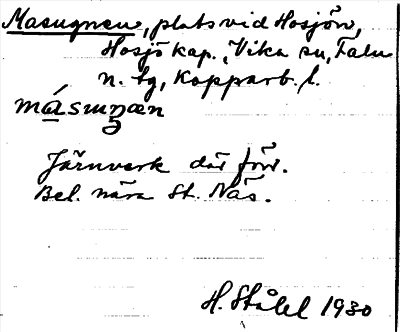 Masugnen, plats vid Hosjön,
Hosjö kap., Vika sn, Falu
n. tg, Kopparb. l.
másuŋnæn
Järnverk där förr.
Bel. nära St. Näs.
H. Ståhl 1930